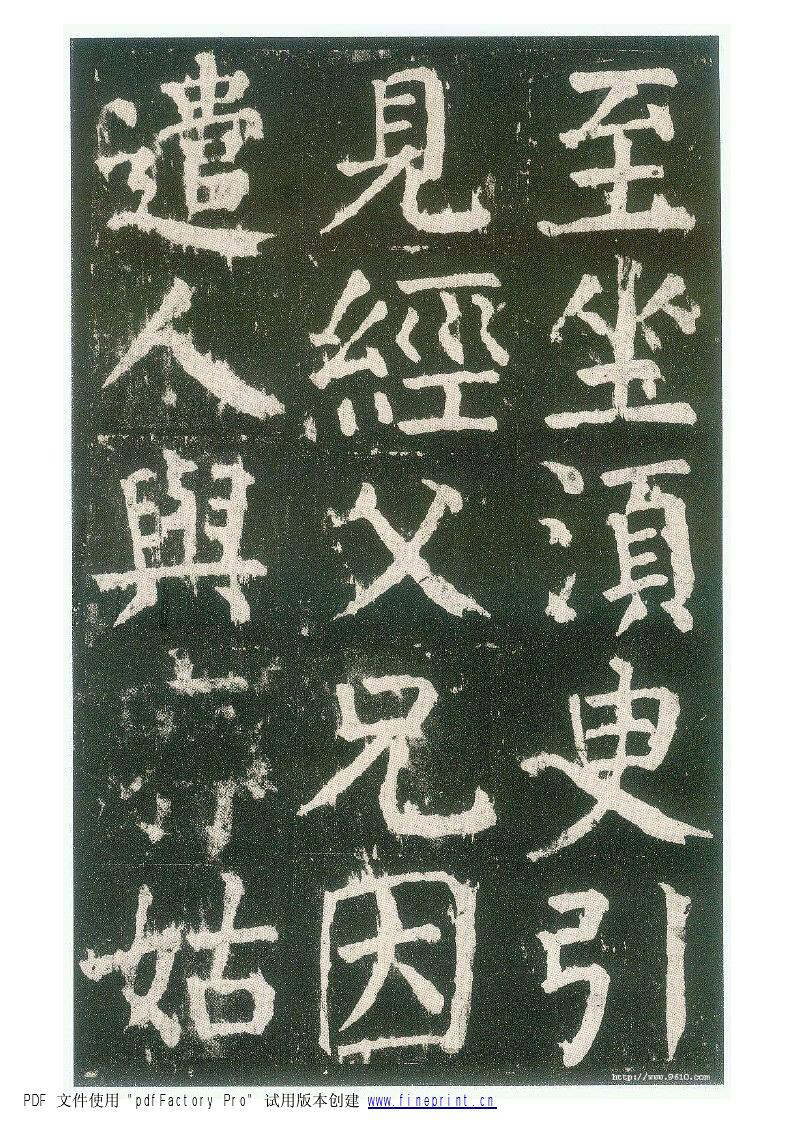 至坐湏臾引
見經父兄因
遣人與姑
http://www.9610.com
PDF 文件使用 "pdfFactory Pro" 试用版本创建 www.fineprint.cn